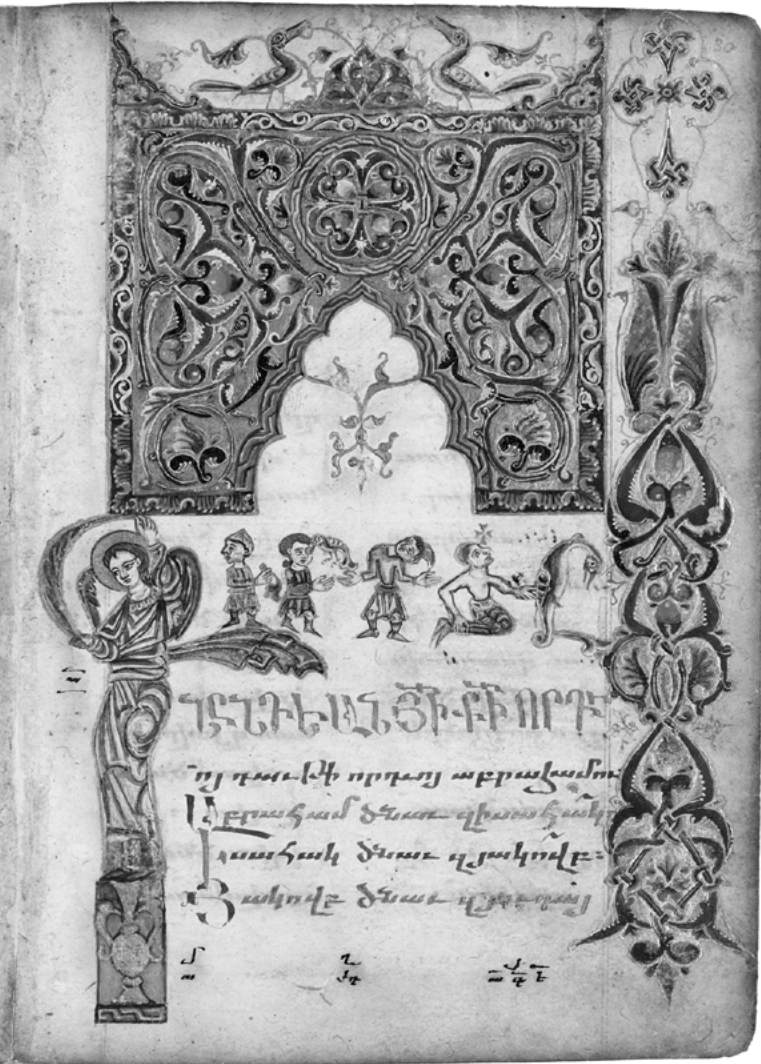 ԳԻՐՔ Ծ
ՆՆԴԵԱՆ ՅԻ ՔԻ ՈՐԴՒ
ոյ դաւթի որդւոյ աբրահամու
Աբրահամ ծնաւ զիսահակ։
Իսահակ ծնաւ զյակովբ։
Յակովբ ծնաւ զյուդայ